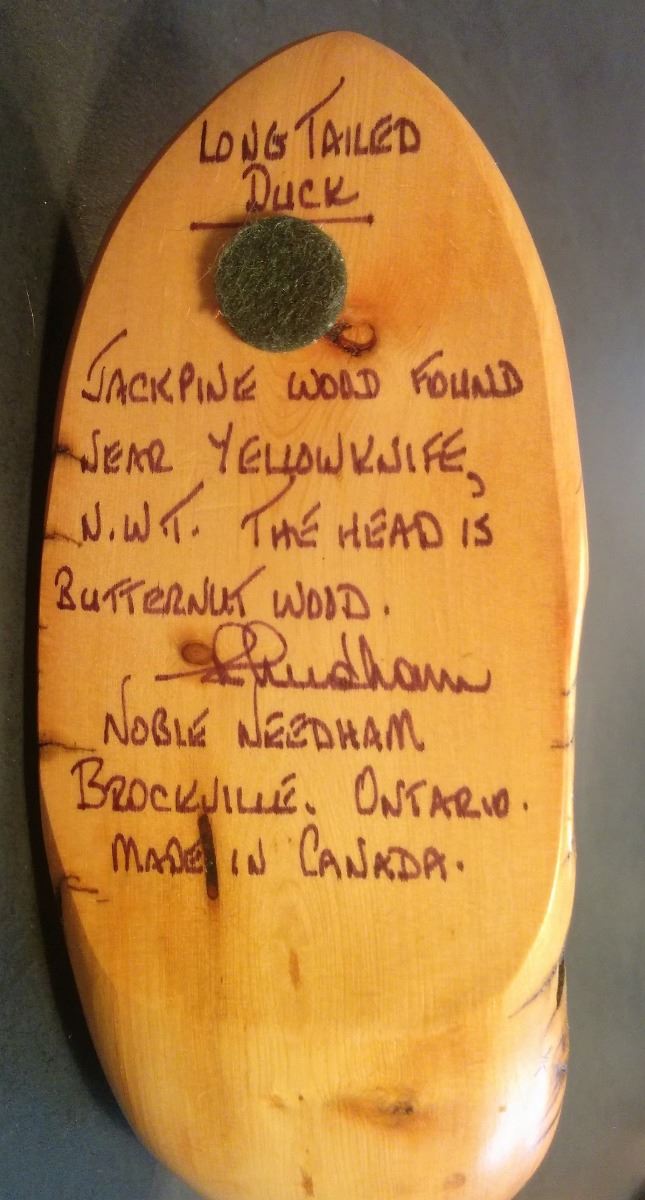 LONG TAILED
DUCK
JACKPINE WOOD FOUND
NEAR YELLOWKNIFE,
N.W.T. THE HEAD IS
BUTTERNUT WOOD.
Needham
NOBLE NEEDHAM
BROCKVILLE. ONTARIO.
MADE IN CANADA.